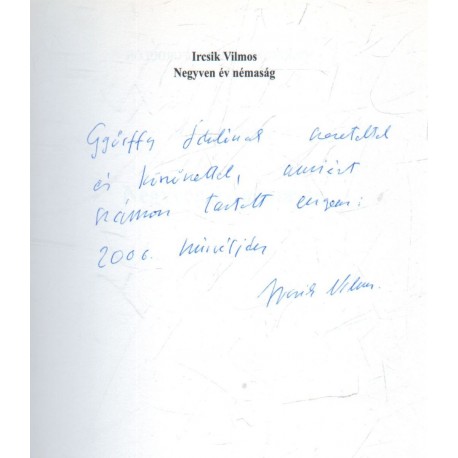 Ircsik Vilmos
Negyven év némaság
Győrffy szeretettel
és köszönettel, amiért
számon tartott engem:
2006.
Ircsik Vilmos